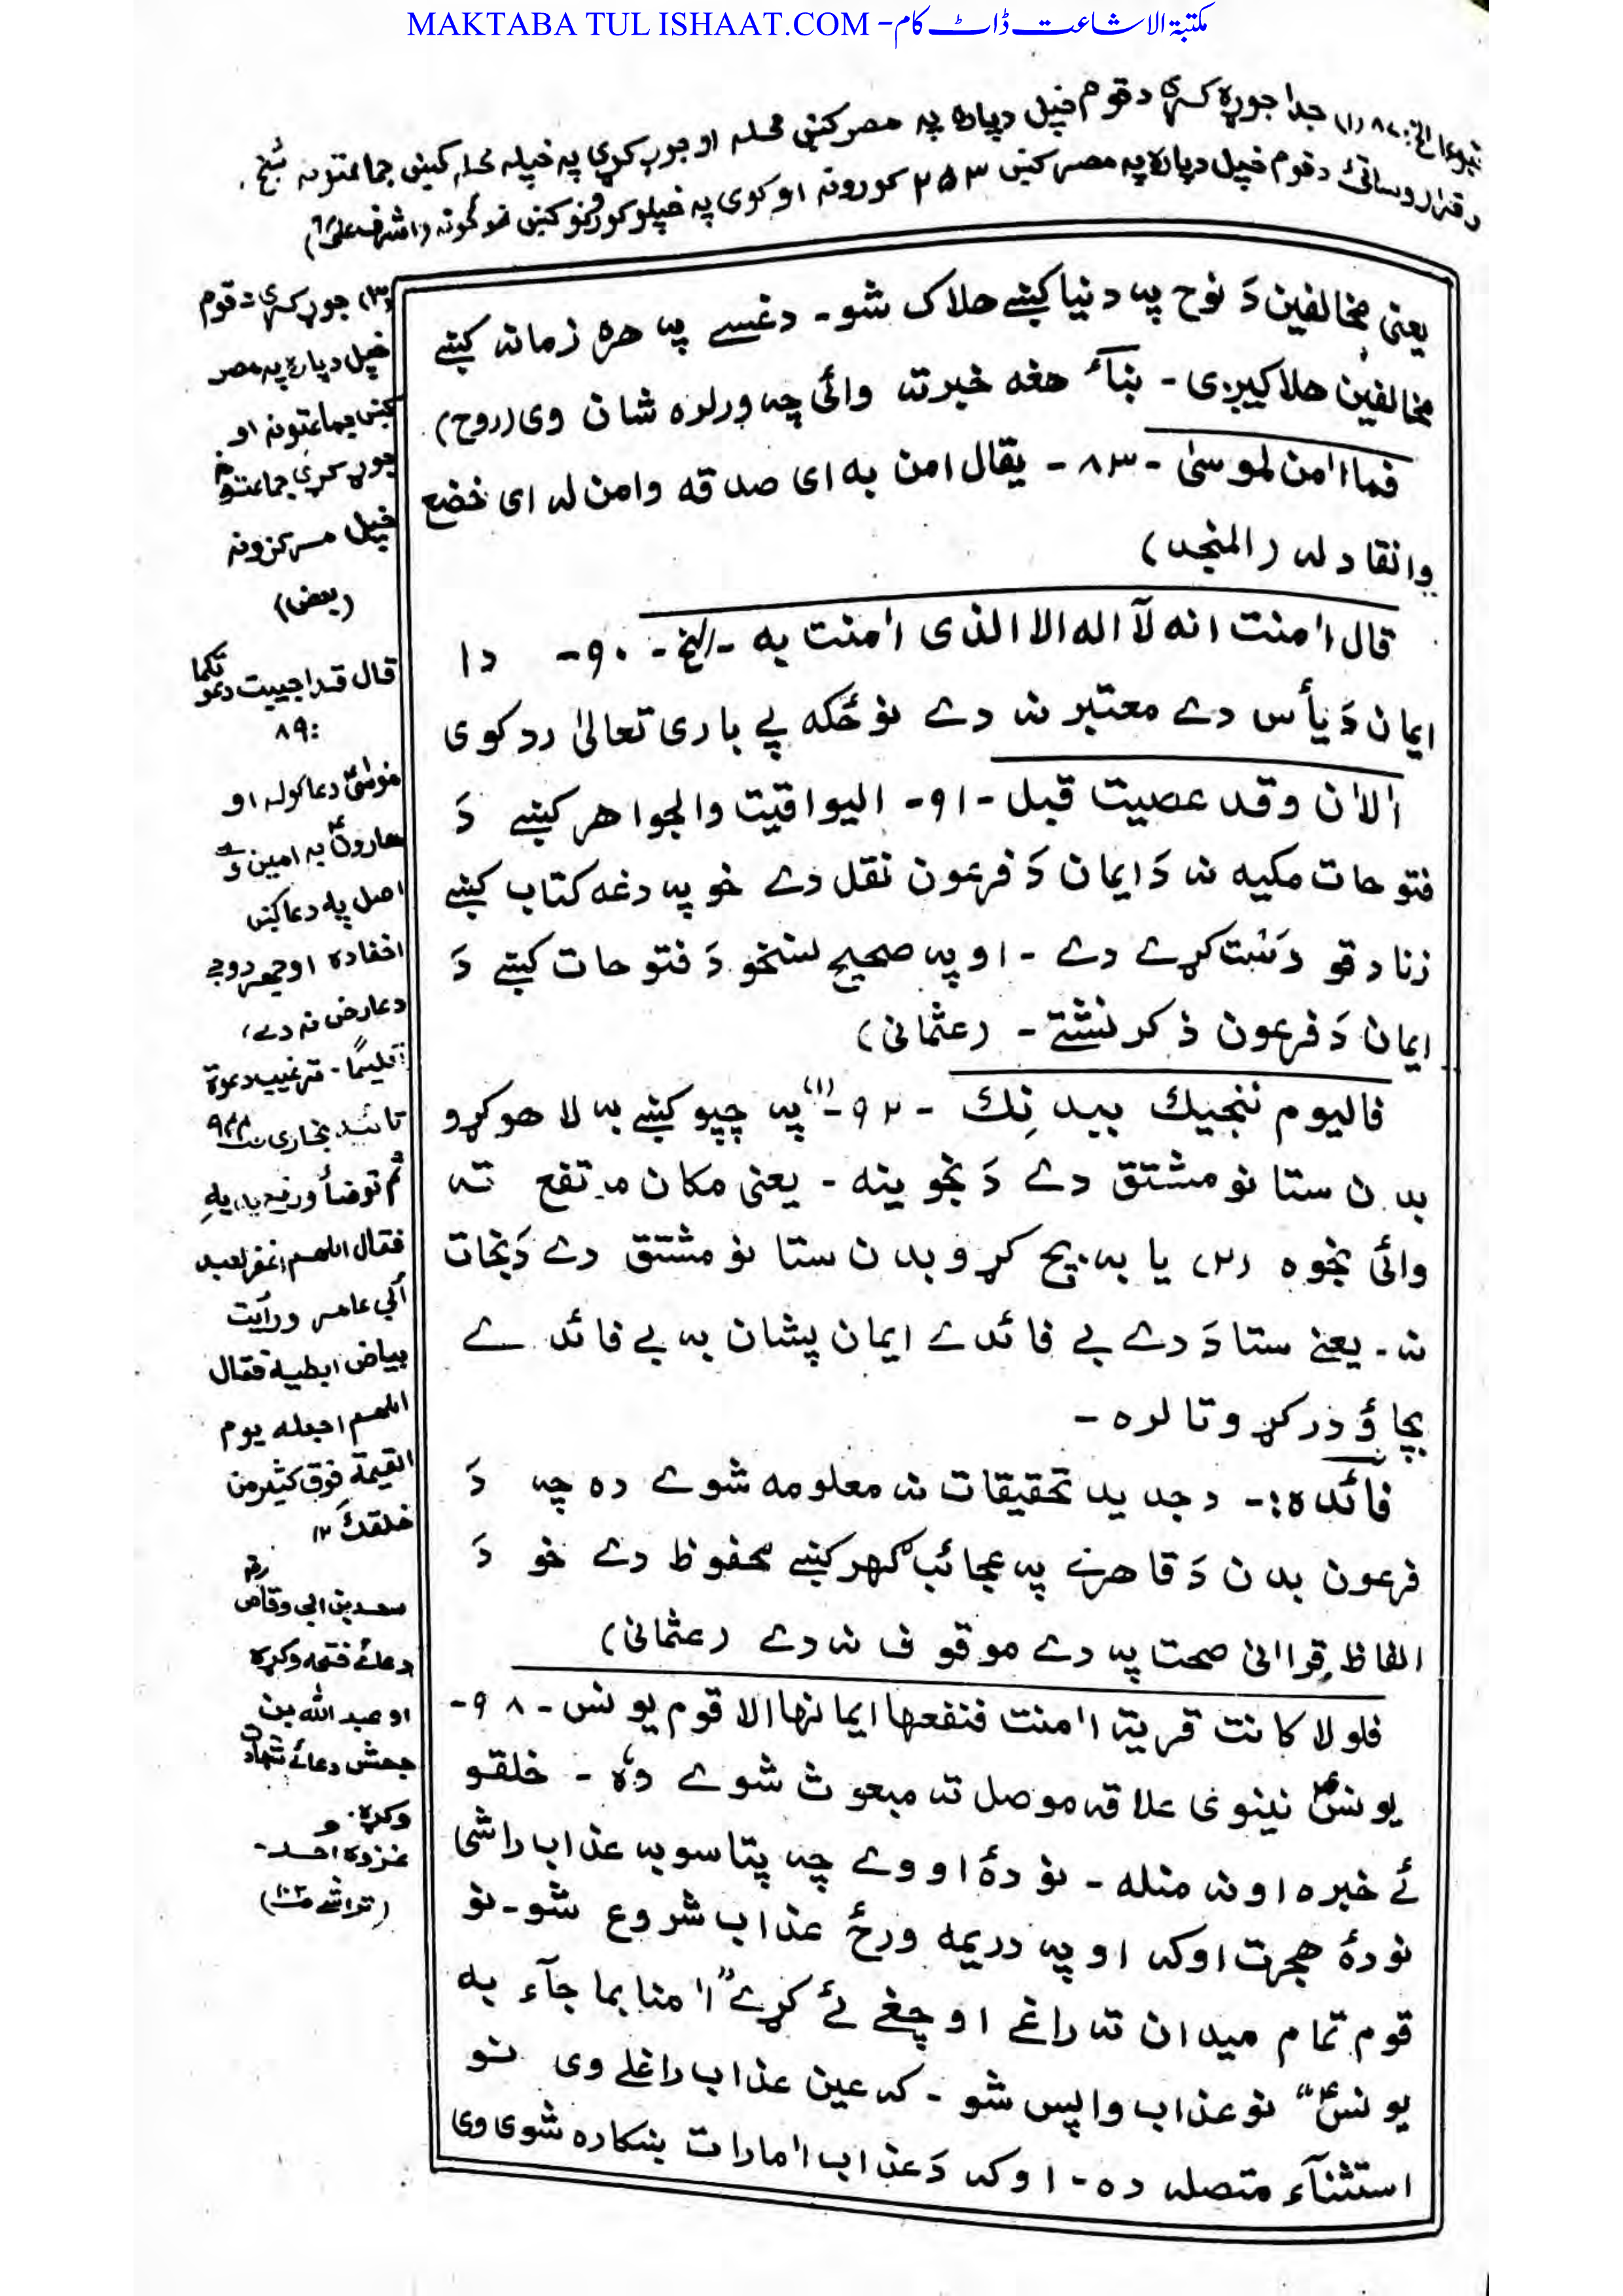 MAKTABA TUL ISHAAT.COM -مکتبۃ الاشاعت ڈاٹ کام
جدا جوړه کړئ د قوم خپل دپاره په مصر کښې محله او جوړ کړي په خپله محله کښې جماعتونه شیخ.
د قوم خپل دپاره په مصر کښې ۲۵۳ کورونه او کوی په خپلو کورونو کښې (اشرف علیؒ)
یعنی مخالفین دَ نوح په دنیا کښے هلاک شو۔ دغسے په هره زمانه کښے
مخالفین هلاکیږی۔ بناءً هغه خبر ته وائی چه ورلره شان وی (روح)
فما اٰمن لموسىٰ -۸۳- یقال امن به ای صدقه وامن له ای خضع
وانقاد له (المنجد)
قال اٰمنت انه لآ اله الا الذی اٰمنت به -الخ- ۹۰- دا
ایمان دَ یأس دے معتبر نه دے نو ځکه پے باری تعالیٰ رد کوی
اٰلاٰن وقد عصیت قبل -۹۱- الیواقیت والجواهر کښے دَ
فتوحات مکیه نه دَ ایمان دَ فرعون نقل دے خو په دغه کتاب کښے
زنادقو دَست کړے دے - او په صحیح نسخو دَ فتوحات کښے دَ
ایمان دَ فرعون ذکر نشتے - (عثمانی)
فالیوم ننجیك ببدنِك -۹۲-(۱) په چپو کښے به لاهو کړو
بدن ستا نو مشتق دے دَ نجوینه - یعنی مکان مرتفع ته
وائی نجوه (۲) یا به بچ کړو بدن ستا نو مشتق دے دَ نجات
نه - یعنے ستا دَ دے بے فائدے ایمان پشان به بے فائدے
بچاؤ درکړو تا لره -
فائده:- د جدید تحقیقات نه معلومه شوے ده چه دَ
فرعون بدن دَ قاهرے په عجائب گهر کښے محفوظ دے خو دَ
الفاظِ قراانی صحت په دے موقوف نه دے (عثمانی)
فلولا کانت قریة اٰمنت فنفعها ایمانها الا قوم یونس - ۹۸-
یونسؑ نینوی علاقه موصل ته مبعوث شوے وہ - خلقو
ئے خبره اونه منله - نو دهٔ اووے چه پتاسو به عذاب راشی
نو دهٔ هجرت اوکه او په دریمه ورځ عذاب شروع شو - نو
قوم تمام میدان ته راغے او چغے ئے کړے "اٰمنا بما جآء به
یونسؑ" نو عذاب واپس شو - که عین عذاب راغلے وی نو
استثنآء متصله ده - او که دَ عذاب امارات ښکاره شوی وی
(۳) جوړ کړئ د قوم
خپل دپاره په مصر
کښې جماعتونه او
جوړ کړي جماعتونه
خپل مرکزونه
(بعض)
قال قد اجیبت دعوتکما
:۸۹
موسیٰؑ دعا کوله او
هارونؑ په امین
اصل په دعا کښې
اخفا ده او جهر د وجے
د عارض نه دے،
تعلیمًا - ترغیب دعوة
تائید بخاری ص۹۴۴
ثم توضأ ورفع یدیهِ
فقال اللهم اغفر لعبید
أبی عامر ورأیت
بیاض ابطیه فقال
اللهم اجعله یوم
القیٰمة فوق کثیر من
خلقكَ ۱۲
سعد بن ابی وقاص رض
دعائے فتحه وکړه
او عبد الله بن
جحش دعائے شهادت
وکړه.
غزوه احد-